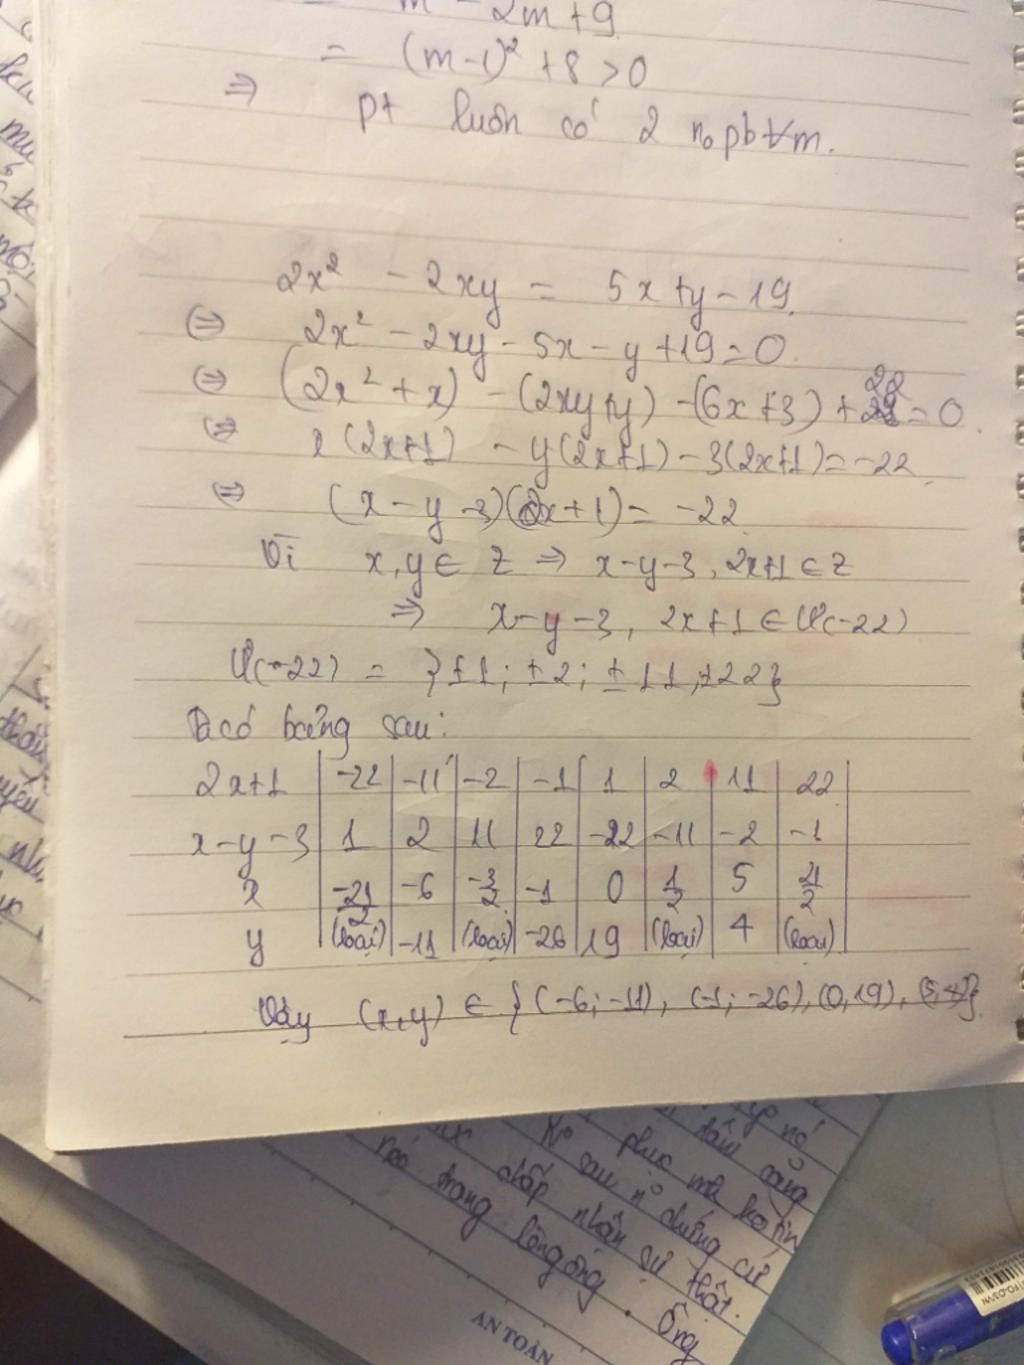 = m² - 2m + 9
= (m-1)² + 8 > 0
⇒ pt luôn có 2 n₀ pb ∀m.
2x² - 2xy = 5x + y - 19.
⇔ 2x² - 2xy - 5x - y + 19 = 0.
⇔ (2x² + x) - (2xy + y) - (6x + 3) + 22 = 0.
⇔ x(2x+1) - y(2x+1) - 3(2x+1) = -22
⇔ (x - y - 3)(2x + 1) = -22
Vì x, y ∈ Z ⇒ x-y-3, 2x+1 ∈ Z
⇒ x-y-3, 2x+1 ∈ Ư(-22)
Ư(-22) = {±1; ±2; ±11; ±22}
Ta có bảng sau:
2x+1 | -22 | -11 | -2 | -1 | 1 | 2 | 11 | 22
x-y-3 | 1 | 2 | 11 | 22 | -22 | -11 | -2 | -1
x | -21/2 | -6 | -3/2 | -1 | 0 | 1/2 | 5 | 21/2
y | (loại) | -11 | (loại) | -26 | 19 | (loại) | 4 | (loại)
Vậy (x,y) ∈ {(-6; -11), (-1; -26), (0, 19), (5, 4)}
tâm sáng
phục mà ko tin
sau n° chứng cứ
chấp nhận sự thật.
trong lòng ông. Ông
AN TOÀN